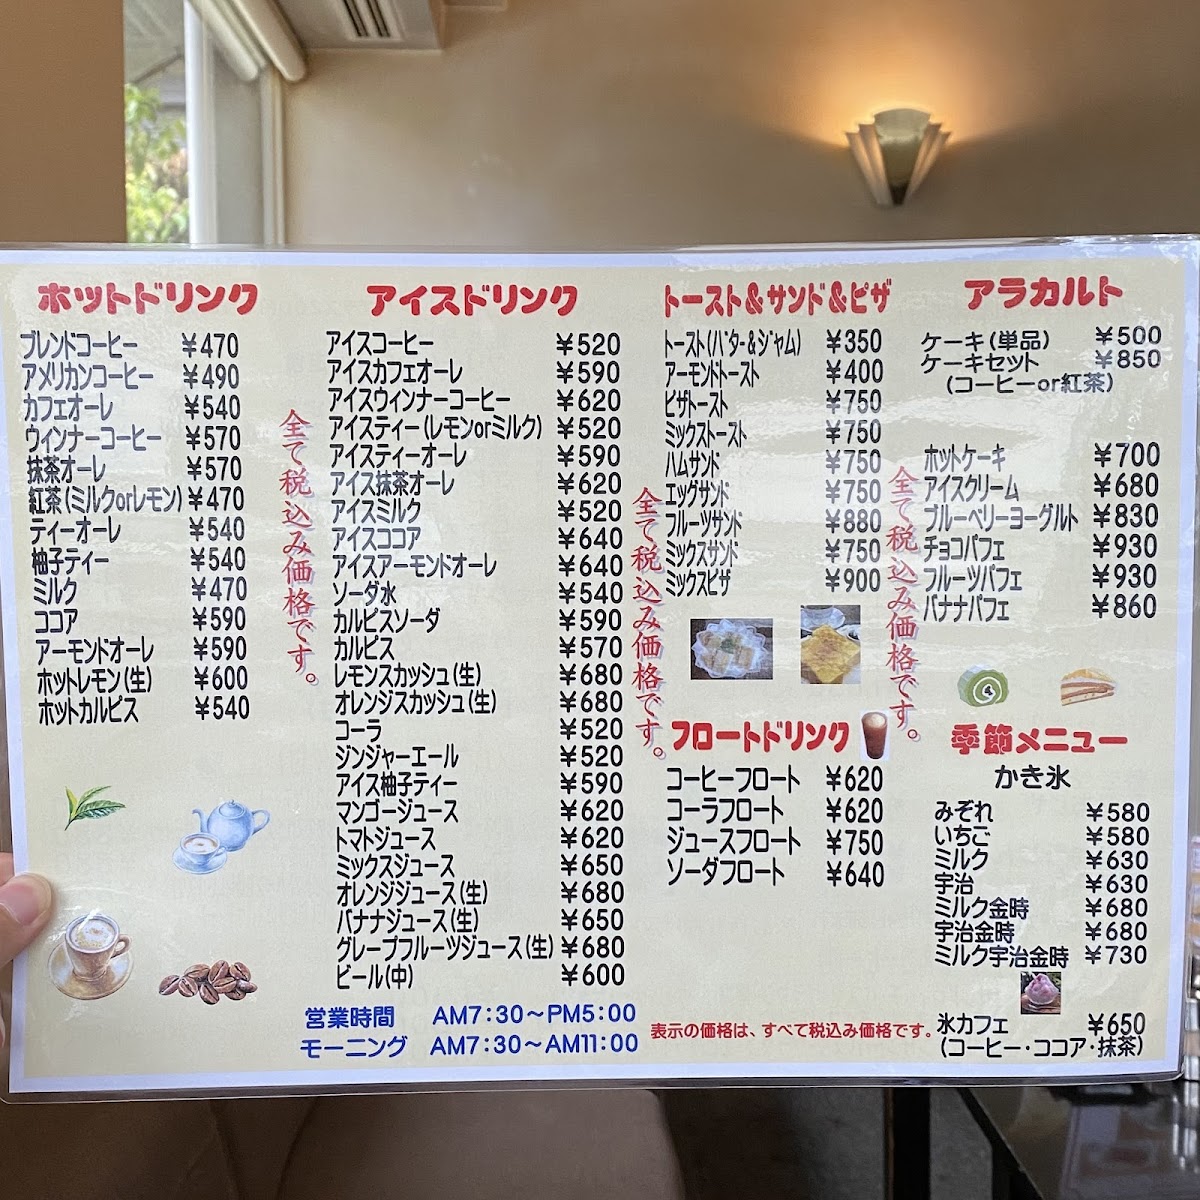 ホットドリンク
ブレンドコーヒー ¥470
アメリカンコーヒー ¥490
カフェオーレ ¥540
ウィンナーコーヒー ¥570
抹茶オーレ ¥570
紅茶(ミルクorレモン) ¥470
ティーオーレ ¥540
柚子ティー ¥540
ミルク ¥470
ココア ¥590
アーモンドオーレ ¥590
ホットレモン(生) ¥600
ホットカルピス ¥540
全て税込み価格です。
アイスドリンク
アイスコーヒー ¥520
アイスカフェオーレ ¥590
アイスウィンナーコーヒー ¥620
アイスティー(レモンorミルク) ¥520
アイスティーオーレ ¥590
アイス抹茶オーレ ¥620
アイスミルク ¥520
アイスココア ¥640
アイスアーモンドオーレ ¥640
ソーダ水 ¥540
カルピスソーダ ¥590
カルピス ¥570
レモンスカッシュ(生) ¥680
オレンジスカッシュ(生) ¥680
コーラ ¥520
ジンジャーエール ¥520
アイス柚子ティー ¥590
マンゴージュース ¥620
トマトジュース ¥620
ミックスジュース ¥650
オレンジジュース(生) ¥680
バナナジュース(生) ¥650
グレープフルーツジュース(生) ¥680
ビール(中) ¥600
全て税込み価格です。
営業時間 AM7:30〜PM5:00
モーニング AM7:30〜AM11:00
トースト&サンド&ピザ
トースト(バター&ジャム) ¥350
アーモンドトースト ¥400
ピザトースト ¥750
ミックストースト ¥750
ハムサンド ¥750
エッグサンド ¥750
フルーツサンド ¥880
ミックスサンド ¥750
ミックスピザ ¥900
全て税込み価格です。
フロートドリンク
コーヒーフロート ¥620
コーラフロート ¥620
ジュースフロート ¥750
ソーダフロート ¥640
表示の価格は、すべて税込み価格です。
アラカルト
ケーキ(単品) ¥500
ケーキセット ¥850
(コーヒーor紅茶)
ホットケーキ ¥700
アイスクリーム ¥680
ブルーベリーヨーグルト ¥830
チョコパフェ ¥930
フルーツパフェ ¥930
バナナパフェ ¥860
季節メニュー
かき氷
みぞれ ¥580
いちご ¥580
ミルク ¥630
宇治 ¥630
ミルク金時 ¥680
宇治金時 ¥680
ミルク宇治金時 ¥730
氷カフェ ¥650
(コーヒー・ココア・抹茶)